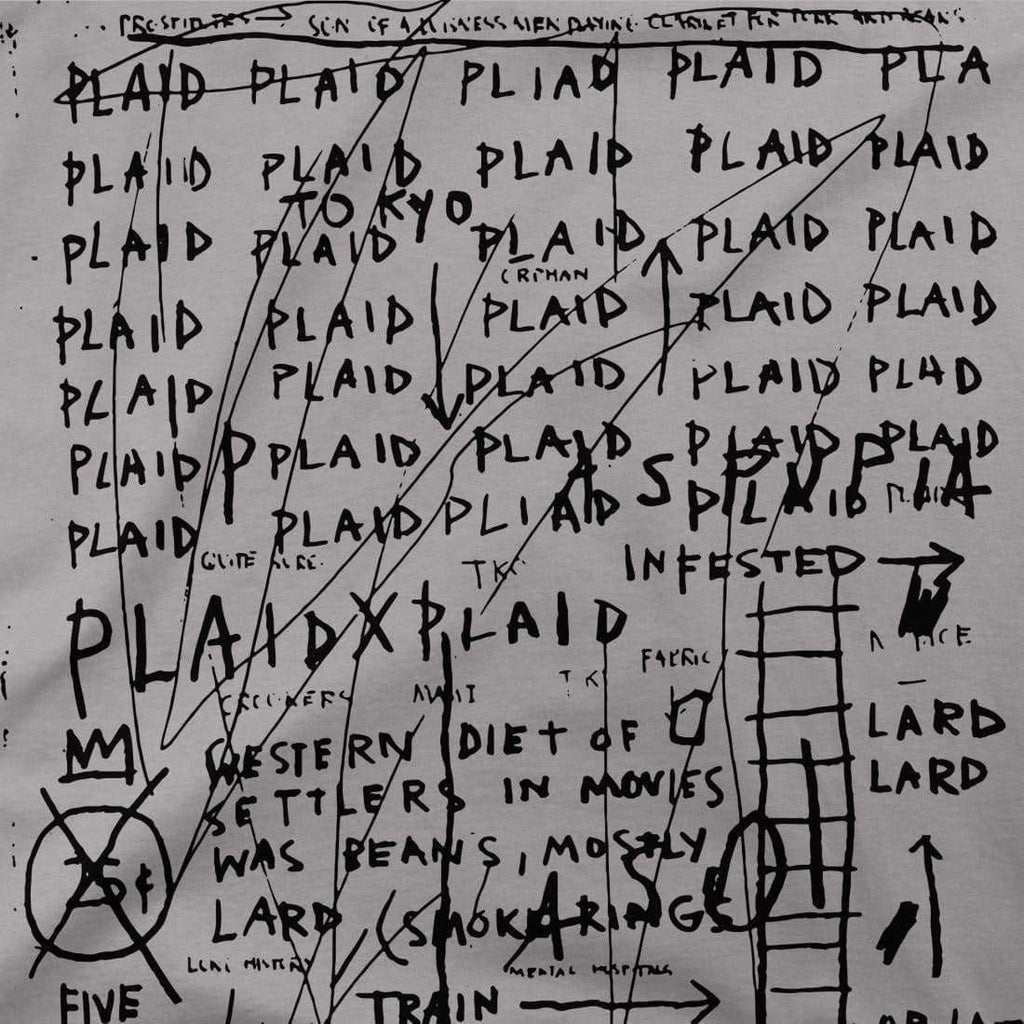 SON OF A BUSINESS MEN PLAYING CLARINET FOR
PLAID PLAID PLIAD PLAID PLA
PLAID PLAID PLAID PLAID PLAID
TOKYO
PLAID PLAID PLAID PLAID PLAID
ORPHAN
PLAID PLAID PLAID PLAID PLAID
PLAID PLAID PLAID PLAID PLAD
PLAID PLAID PLAID PLAID PLAID
P AS PUPPIA
PLAID PLAID PLIAD PLAID
QUITE SURE.
TK
INFESTED
PLAIDXPLAID
FABRIC
TK
LARD
LARD
WESTERN DIET OF
SETTLERS IN MOVIES
WAS BEANS, MOSTLY
LARD (SMOKERINGS
5¢
MENTAL HOSPITALS
FIVE TRAIN